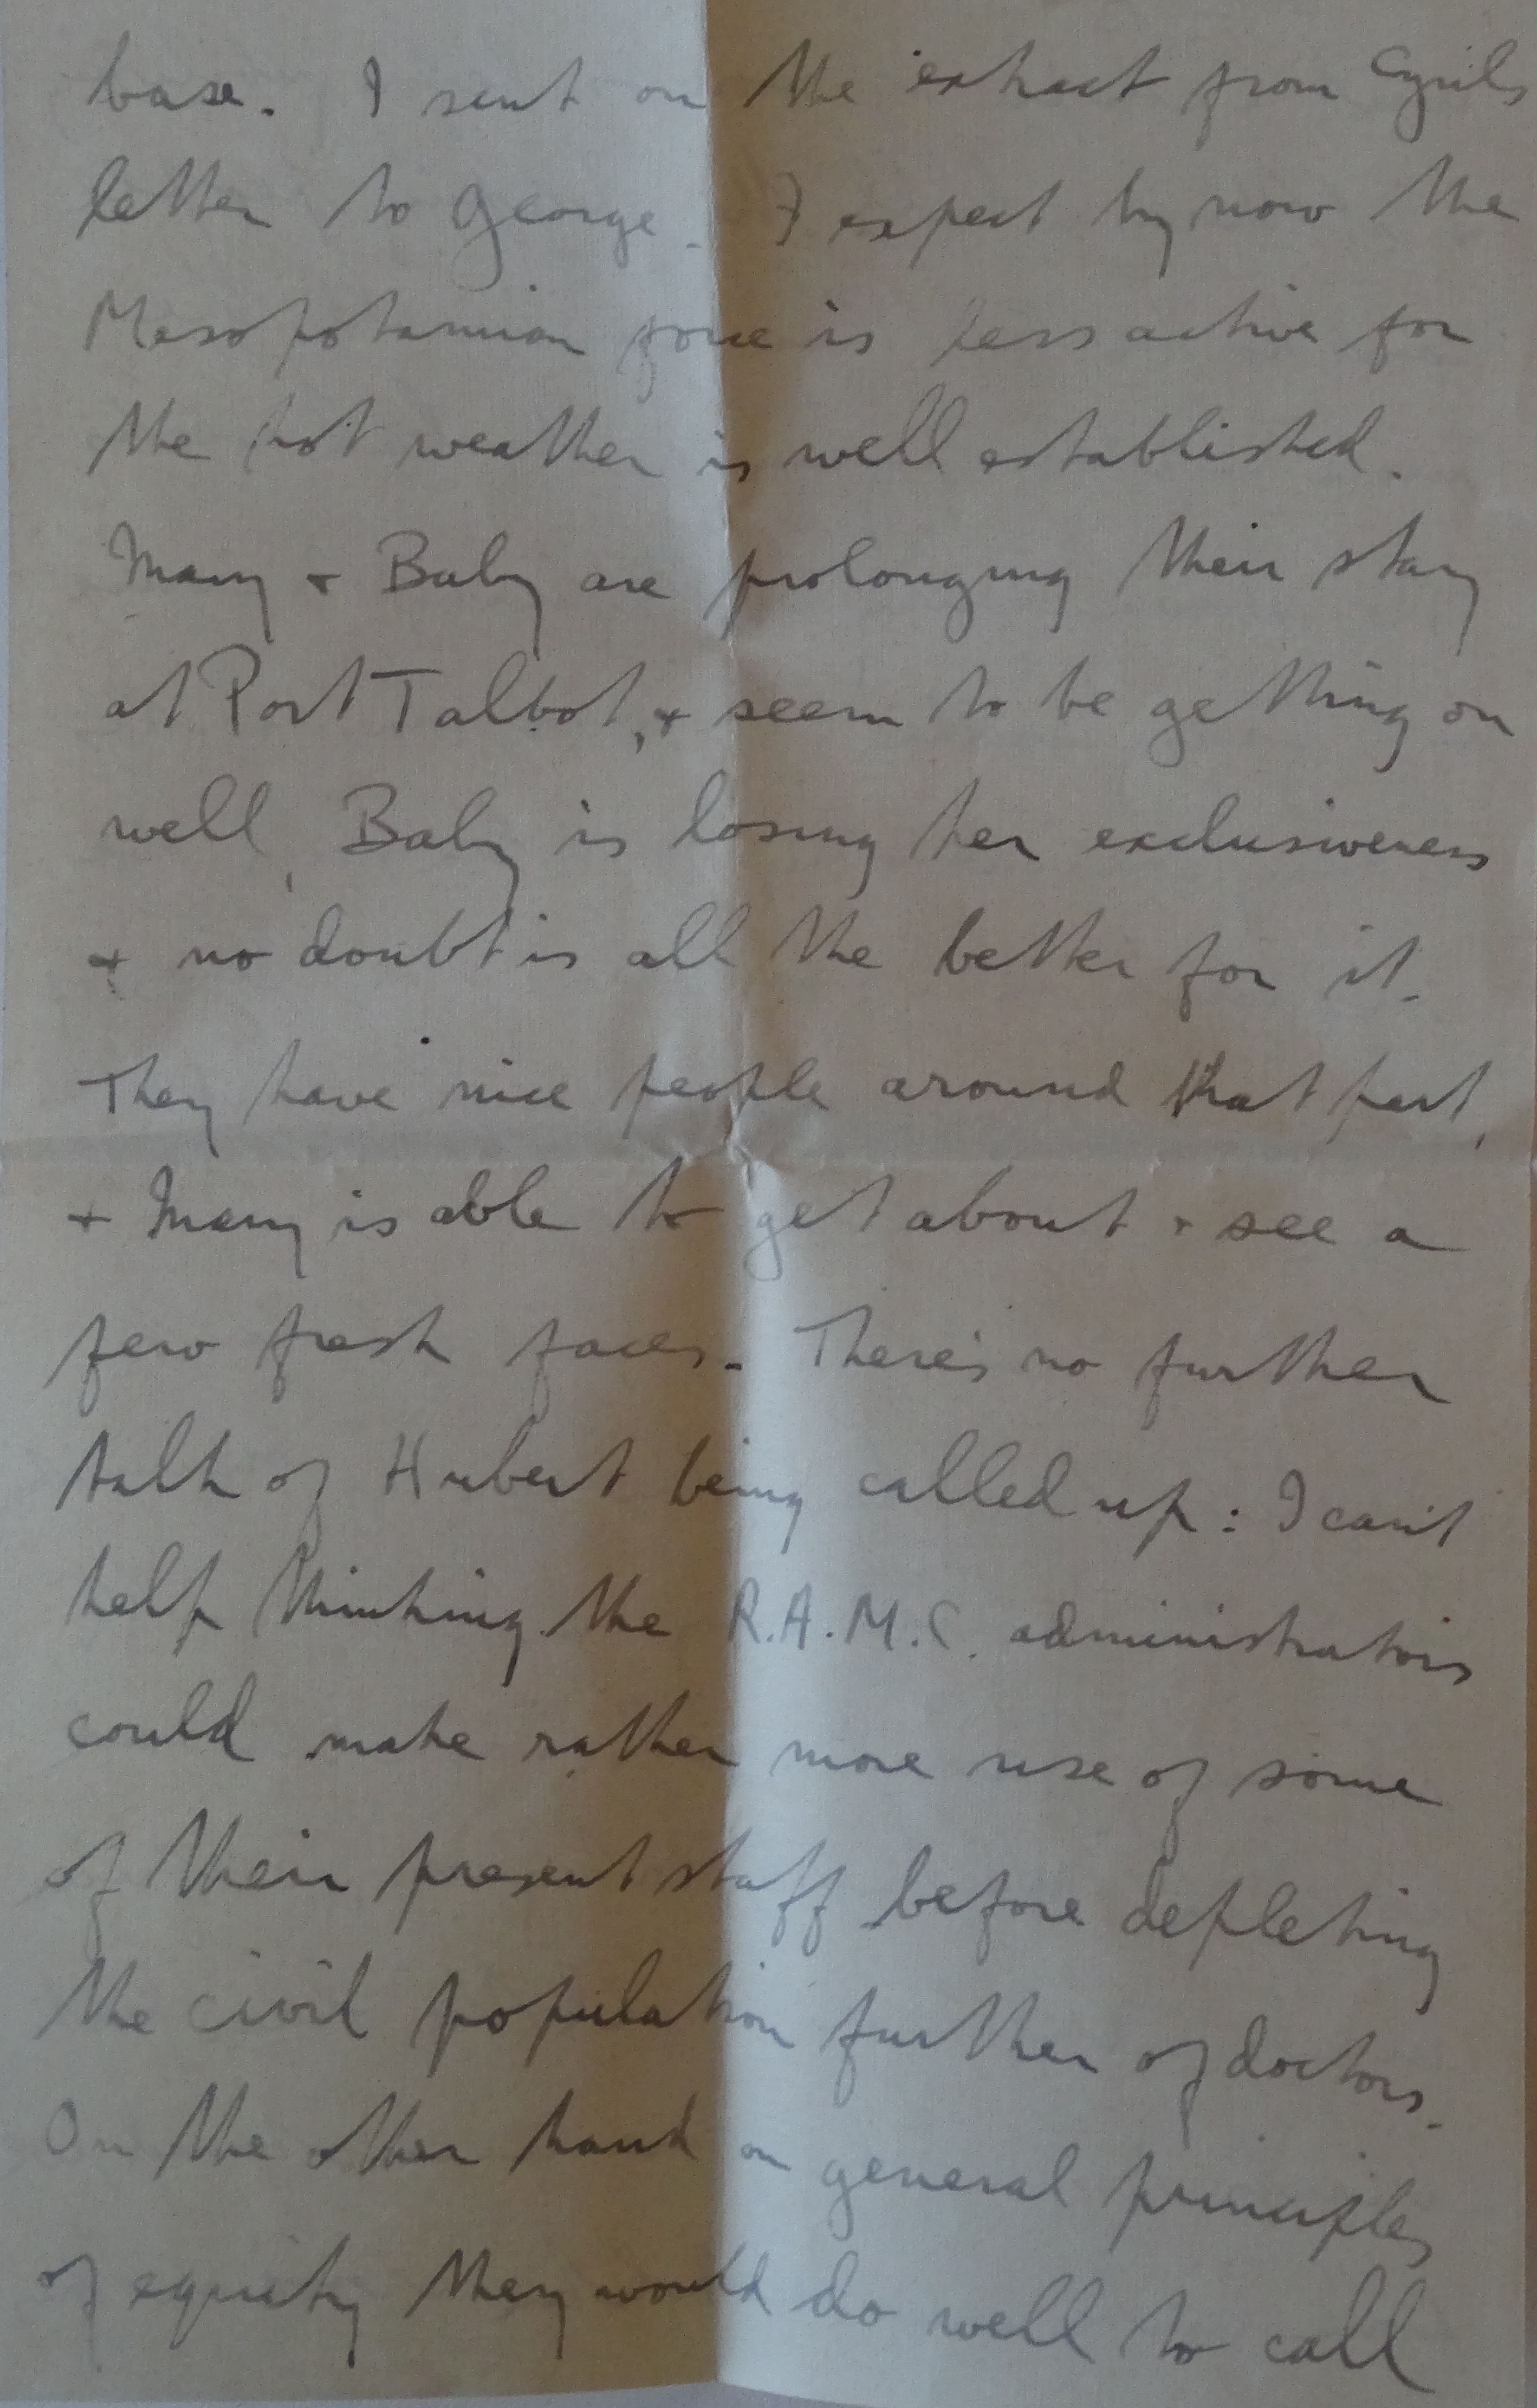 base. I sent on the extract from Cyrils
letter to George. I expect by now the
Mesopotamian force is less active for
the hot weather is well established.
Mary + Baby are prolonging their stay
at Port Talbot, + seem to be getting on
well, Baby is losing her exclusiveness
+ no doubt is all the better for it.
They have nice people around that part,
+ Mary is able to get about + see a
few fresh faces. There's no further
talk of Hubert being called up: I can't
help thinking the R.A.M.C. administrators
could make rather more use of some
of their present staff before depleting
the civil population further of doctors.
On the other hand on general principles
of equity they would do well to call